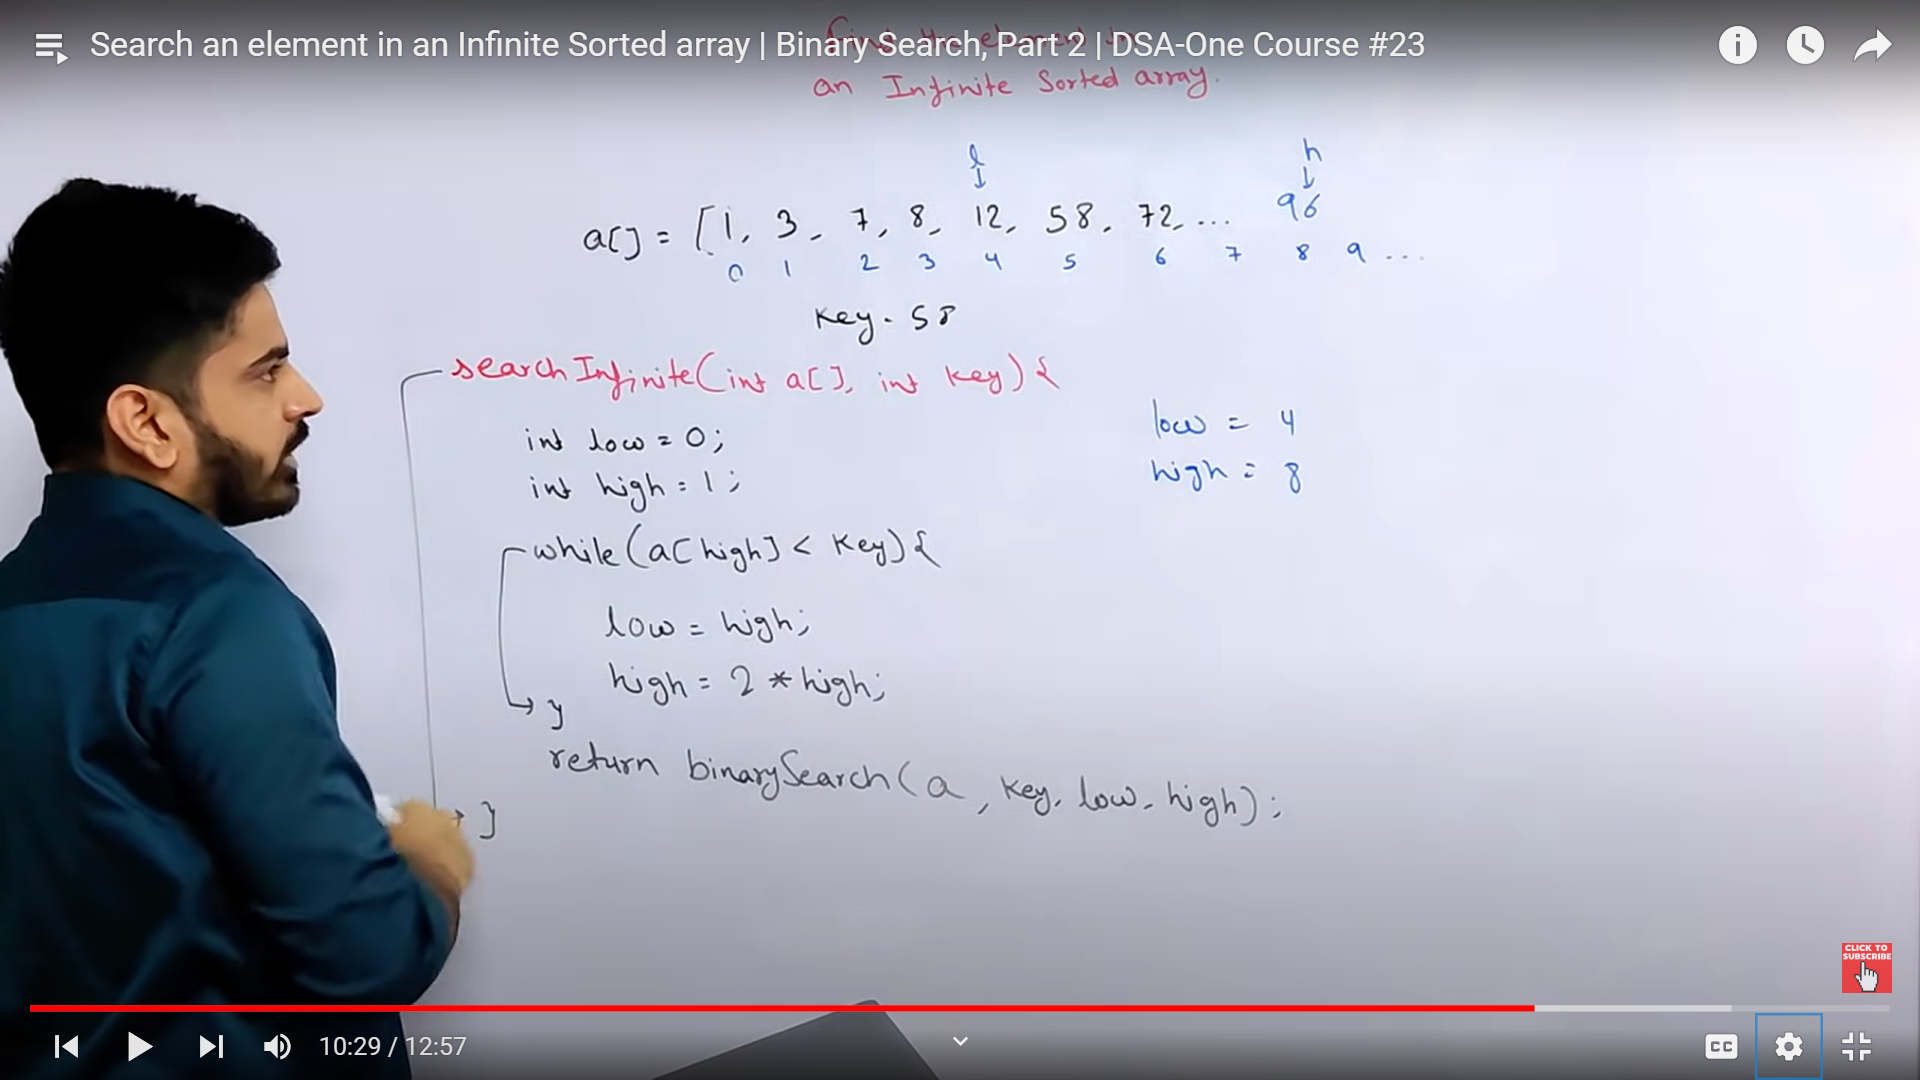 Search an element in an Infinite Sorted array | Binary Search, Part 2 | DSA-One Course #23
Find the element in
an Infinite Sorted array.
l h
a[] = [1, 3, 7, 8, 12, 58, 72, ... 96
0 1 2 3 4 5 6 7 8 9 ...
Key - 58
searchInfinite(int a[], int key) {
int low = 0;
int high = 1;
low = 4
high = 8
while(a[high] < key) {
low = high;
high = 2 * high;
}
return binarySearch(a, key, low, high);
}
CLICK TO
SUBSCRIBE
10:29 / 12:57
CC